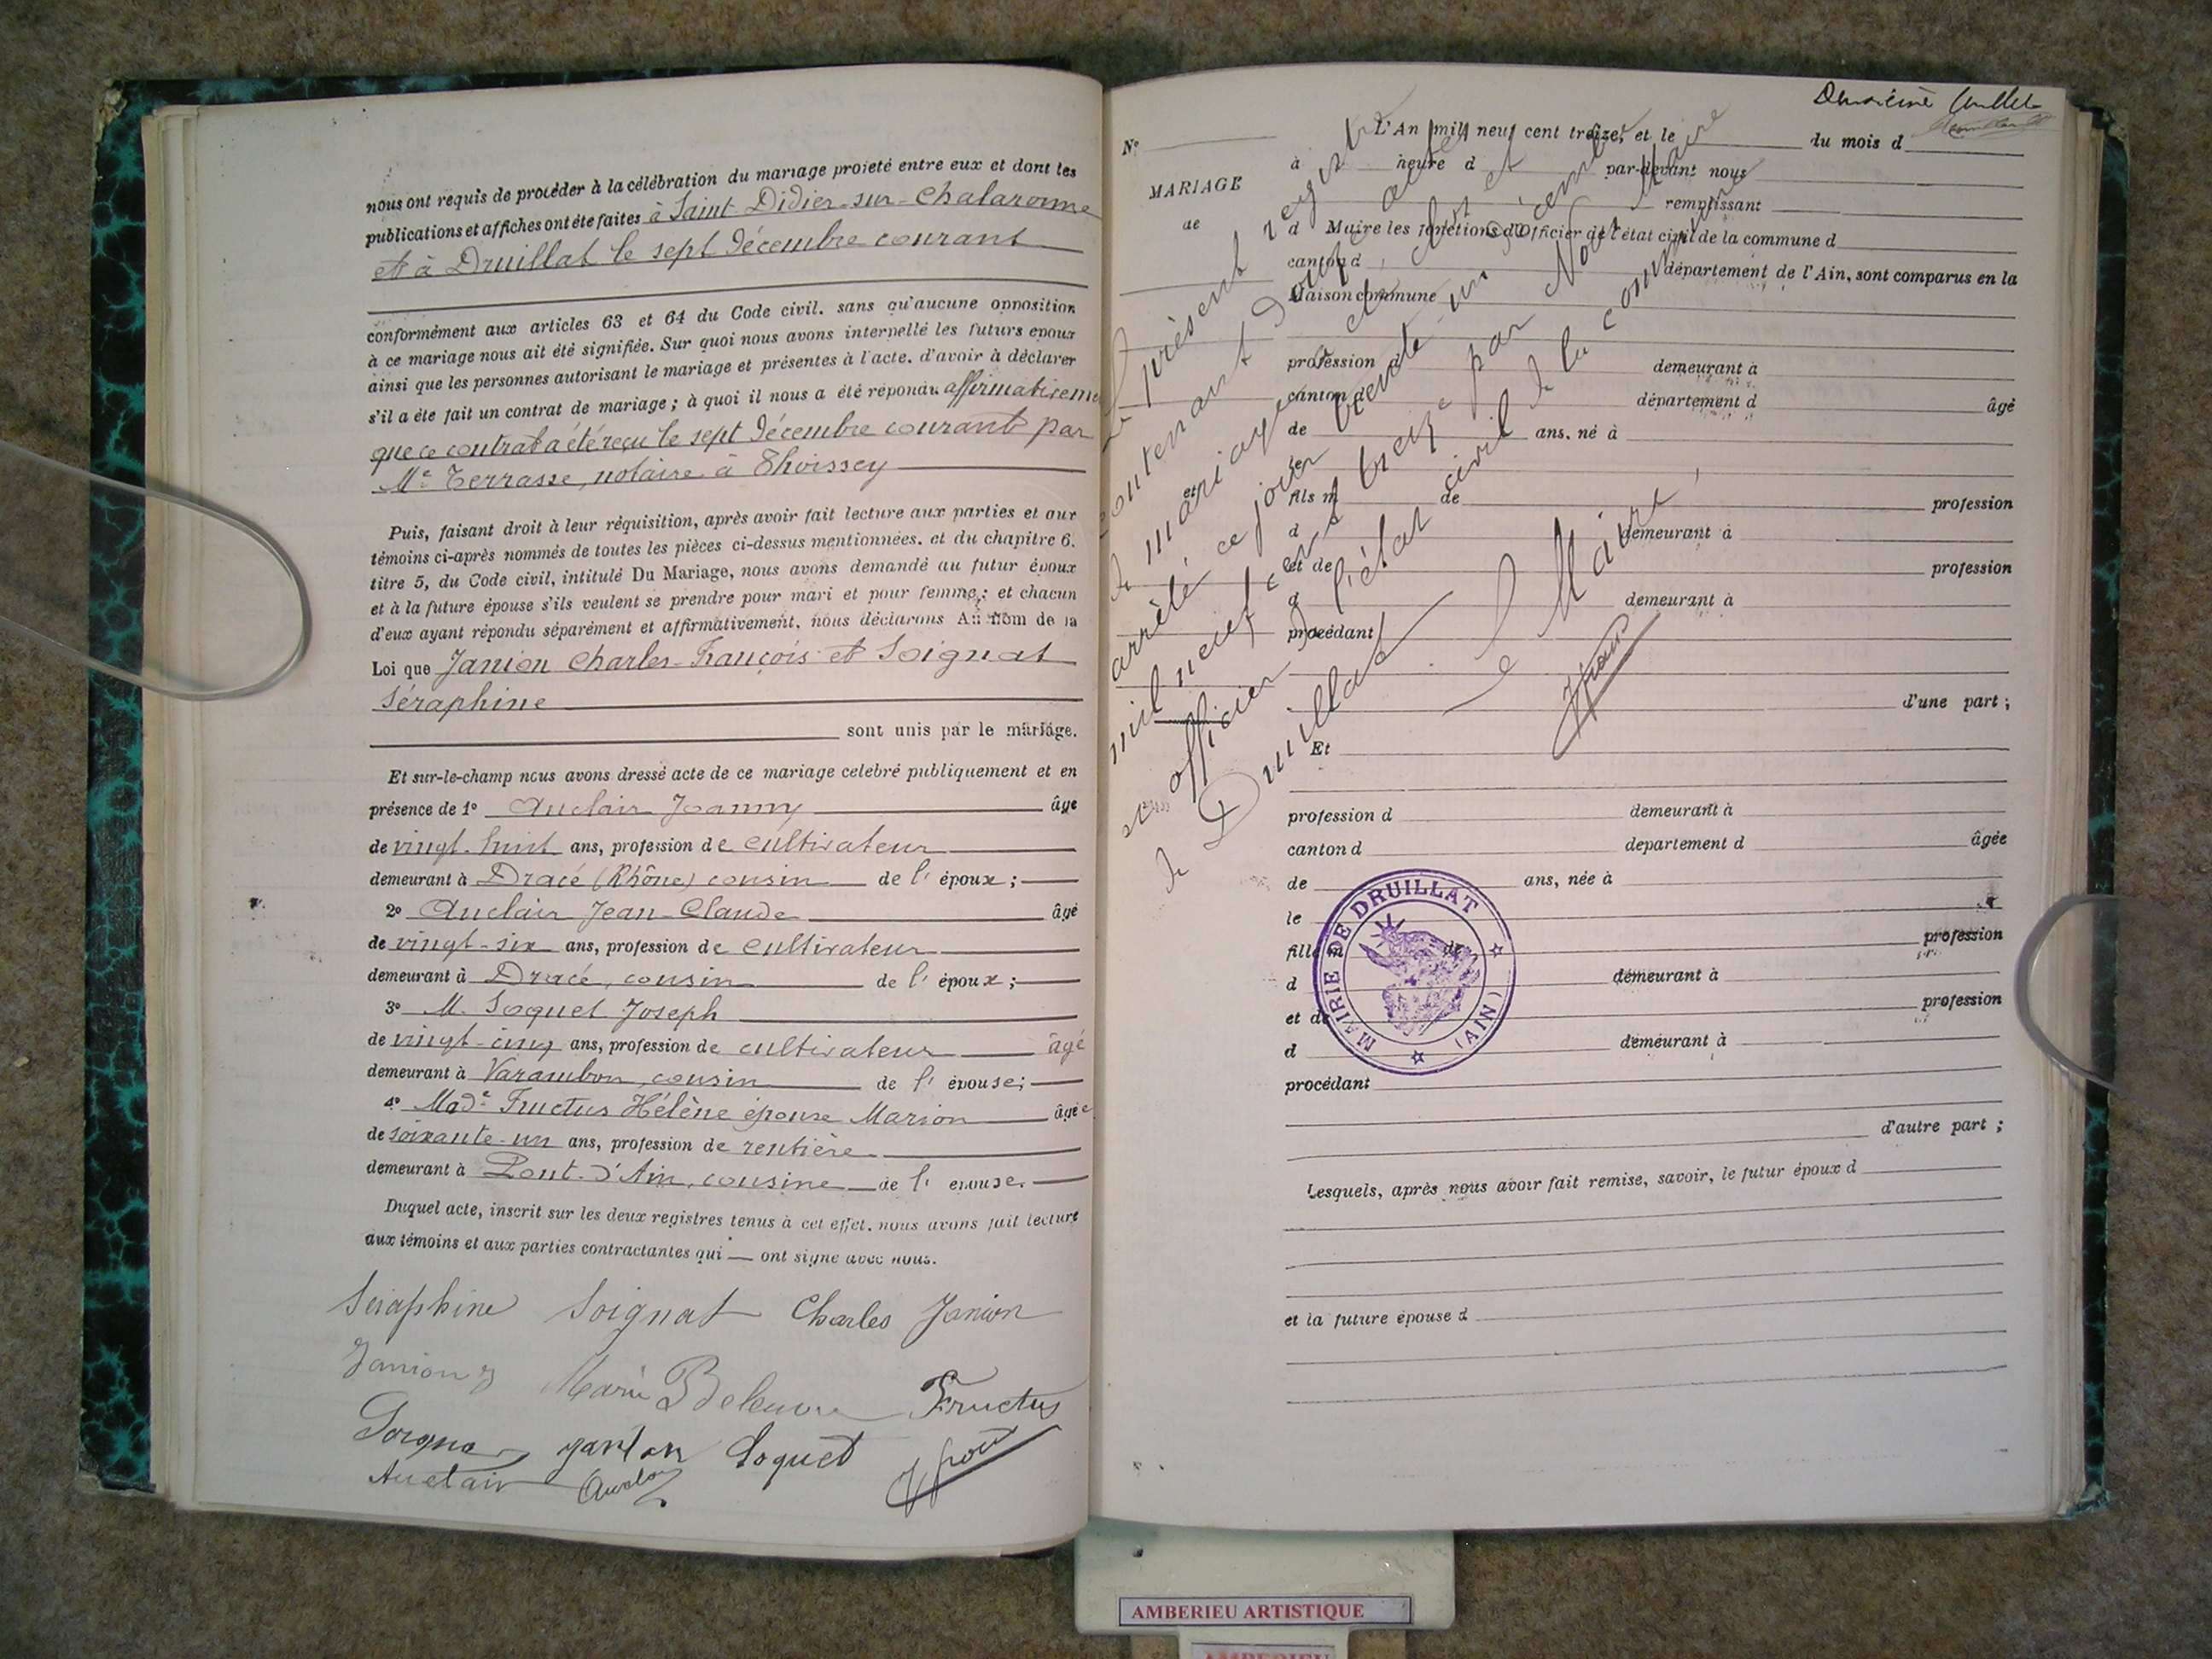 nous ont requis de procéder à la célébration du mariage projeté entre eux et dont les
publications et affiches ont été faites à Saint-Didier-sur-Chalaronne
et à Druillat le sept décembre courant
conformément aux articles 63 et 64 du Code civil. sans qu'aucune opposition
à ce mariage nous ait été signifiée. Sur quoi nous avons interpellé les futurs epoux
ainsi que les personnes autorisant le mariage et présentes à l'acte. d'avoir à déclarer
s'il a été fait un contrat de mariage ; à quoi il nous a été répondu affirmativeme
que ce contrat a été reçu le sept décembre courant par
Me Terrasse, notaire à Thoissey
Puis, faisant droit à leur réquisition, après avoir fait lecture aux parties et aux
témoins ci-après nommés de toutes les pièces ci-dessus mentionnées. et du chapitre 6.
titre 5, du Code civil, intitulé Du Mariage, nous avons demandé au futur époux
et à la future épouse s'ils veulent se prendre pour mari et pour femme ; et chacun
d'eux ayant répondu séparément et affirmativement, nous déclarons Au nom de la
Loi que Janion Charles-François et Soignat
Séraphine
sont unis par le mariage.
Et sur-le-champ nous avons dressé acte de ce mariage celebré publiquement et en
présence de 1° Auclair Joanny âge
de vingt-huit ans, profession de cultivateur
demeurant à Dracé (Rhône) cousin de l' époux ;
2° Auclair Jean-Claude âgé
de vingt-six ans, profession de cultivateur
demeurant à Dracé, cousin de l' époux ;
3° M. Soquet Joseph
de vingt-cinq ans, profession de cultivateur âgé
demeurant à Varambon, cousin de l' épouse;
4° Made Fructus Hélène épouse Marion âgée
de soixante-un ans, profession de rentière
demeurant à Pont-d'Ain, cousine de l' epouse.
Duquel acte, inscrit sur les deux registres tenus à cet effet. nous avons fait lecture
aux témoins et aux parties contractantes qui ont signe avec nous.
Séraphine Soignat Charles Janion
Janion Marie Fructus
Soquet
Auclair
Deuxième feuillet
N°
MARIAGE
de
et
L'An mil neuf cent treize, et le du mois d
à heure d par-devant nous
remplissant
d Maire les fonctions d'Officier de l'état civil de la commune d
canton d département de l'Ain, sont comparus en la
Maison commune
profession d demeurant à
canton d département d âgé
de ans. né à
le
fils m de profession
d demeurant à
et de profession
d demeurant à
procédant
d'une part ;
Et
profession d demeurant à
canton d departement d âgée
de ans, née à
le
fille m de profession
d demeurant à
et de profession
d demeurant à
procédant
d'autre part ;
Lesquels, après nous avoir fait remise, savoir, le futur époux d
et la future épouse d
Le présent registre
contenant douze actes
de mariage a été clos et
arrêté ce jour trente-un décembre
mil neuf cent treize par Nous Maire
officier de l'état civil de la commune
de Druillat
Le Maire,
MAIRIE DE DRUILLAT
(AIN)
AMBERIEU ARTISTIQUE
AMBERIEU